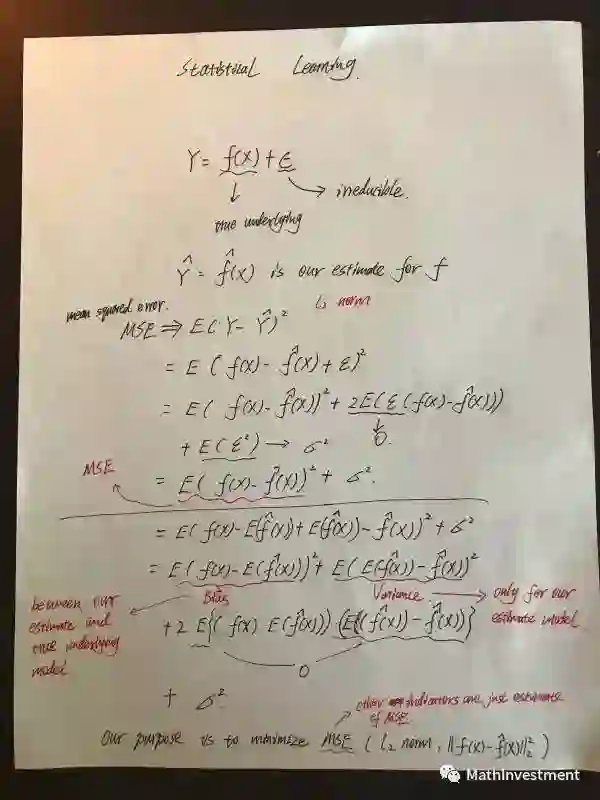 Statistical Learning.
Y = f(x) + ε
irreducible.
true underlying
Ŷ = f̂(x) is our estimate for f
mean squared error.
L₂ norm
MSE ⇒ E(Y - Ŷ)²
= E (f(x) - f̂(x) + ε)²
= E( f(x) - f̂(x))² + 2E(ε(f(x) - f̂(x)))
+ E(ε²) → σ²
0.
MSE
= E( f(x) - f̂(x))² + σ².
= E( f(x) - E(f̂(x)) + E(f̂(x)) - f̂(x))² + σ²
= E( f(x) - E(f̂(x)))² + E( E(f̂(x)) - f̂(x))²
Bias
Variance
only for our
estimate model.
between our
estimate and
true underlying
model
+ 2 E{( f(x) E(f̂(x))) (E(f̂(x)) - f̂(x))}
0
+ σ².
other indicators are just estimate
of MSE
Our purpose is to minimize MSE ( l₂ norm, ||f(x) - f̂(x)||₂² )
MathInvestment